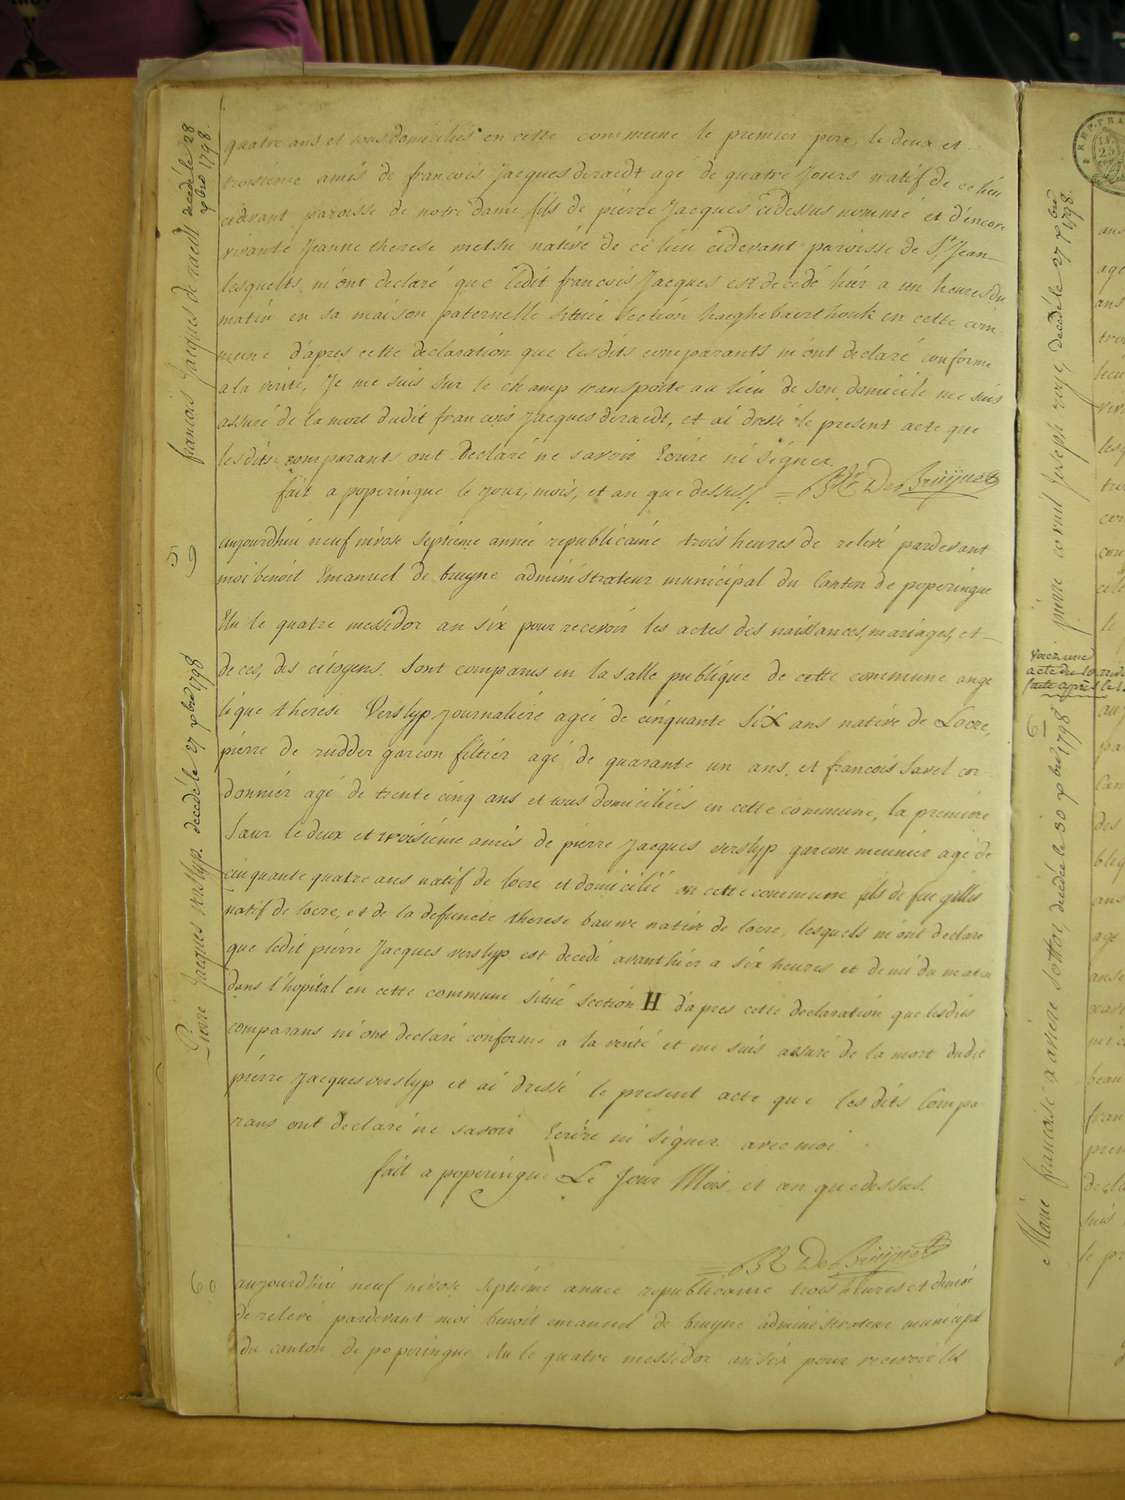 quatre ans et tous domiciliés en cette commune le premier pere, le deux et
troisième amis de francois Jacques deraedt agé de quatre Jours natif de ce lieu
cidevant paroisse de notre dame, fils de piérre Jacques cidessus nommé et d'encore
vivante Jeanne therese metsu native de ce lieu cidevant paroisse de St Jean
lesquelts m'ont declaré que ledit francois Jacques est decedé hiér a un heures du
matin en sa maison paternelle située section haeghebaerthouk en cette com
mune d'apres cette declaration que lesdits comparants m'ont declaré conforme
a la verité, Je me suis sur le champ transporté au lieu de son domicile me suis
assuré de la mort dudit francois Jacques deraedt, et ai dressé le present acte que
lesdits comparants ont declaré ne savoir Ecrire ni signer
fait a poperingue le Jour, mois, et an que dessus
BE De Bruyne
francois Jacques de raedt decedé le 28 xbre 1798
59
aujourdhui neuf nivose septieme année republicaine trois heures de relevé pardevant
moi benoit Emanuel de bruyne administrateur municipal du Canton de poperingue
Elu le quatre messidor an six pour recevoir les actes des naissances, mariages, et
deces, des citoyens. Sont comparus en la salle publique de cette commune ange
lique therese Verslyp journaliére agée de cinquante six ans native de Locre,
piérre de rudder garcon filtiér agé de quarante un ans, et francois Savel cor
donniér agé de trente cinq ans et tous domiciliés en cette commune, la premiére
Sœur le deux et troisiéme amis de piérre Jacques verslyp garcon meuniér agé de
cinquante quatre ans natif de locre et domicilié en cette commune fils de feu gilles
natif de locre, et de la defuncte therese bauwe native de locre, lesquels m'ont declaré
que ledit piérre Jacques verslyp est decedé avanthiér a six heures et demié du matin
dans l'hopital en cette commune situé section H d'apres cette declaration que lesdits
comparans m'ont declaré conforme a la verité et me suis assuré de la mort dudit
piérre Jacques verslyp et ai dressé le present acte que lesdits Compa
rans ont declaré ne savoir Ecrire ni signer avec moi
fait a poperingue Le Jour Mois et an que dessus.
BE De Bruyne
Pierre Jacques verslyp. decedé le 27 xbre 1798
60
aujourdhui neuf nivose septiéme année republicaine trois heures et demié
de relevé pardevant moi benoit emanuel de bruyne administrateur municipal
du canton de poperingue elu le quatre messidor an six pour recevoir les
pierre cornil joseph roye, decedé le 27 xbre 1798.
voiez une
acte du
faite apres
61
Marie francoise xaviere sottor, decedée le 30 xbre 1798